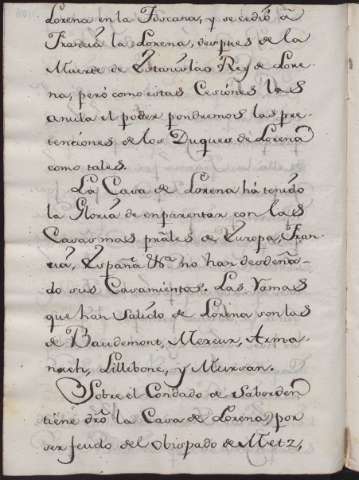 Lorena en la Toscana, y se cedió á
Francia la Lorena, despues de la
Muerte de Estanislao Rey de Lore-
na, peró como estas Cesiónes las
anula el poder pondremos las pre-
tenciónes de los Duques de Lorena
como tales.
La Casa de Lorena há tenido
la Gloria de enparentar con las
Casas mas prâles de Európa, Fran-
cia, España &ª no han desdeña-
do sus Casamientos. Las Ramas
que han Salido de Lorena son las
de Baudemont, Mercur, Arma-
nach, Lillibone, y Mursan.
Sobre el Condado de Saborden
tiene dro̅ la Casa de Lorena, por
ser feudo del obispado de Metz,